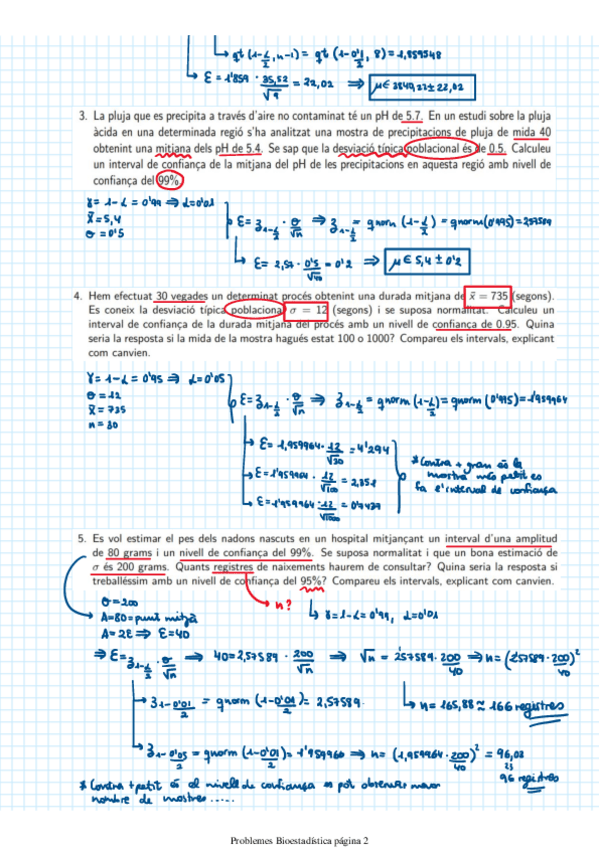 qt(1-α/2, n-1) = qt(1-0'1/2, 8) = 1,859548
ε = 1'859 · 35,52/√9 = 22,02 ⇒ μ ∈ 3849,22 ± 22,02
3. La pluja que es precipita a través d'aire no contaminat té un pH de 5.7. En un estudi sobre la pluja
àcida en una determinada regió s'ha analitzat una mostra de precipitacions de pluja de mida 40
obtenint una mitjana dels pH de 5.4. Se sap que la desviació típica poblacional és de 0.5. Calculeu
un interval de confiança de la mitjana del pH de les precipitacions en aquesta regió amb nivell de
confiança del 99%.
γ = 1-α = 0'99 ⇒ α=0'01
x̄ = 5,4
σ = 0'5
ε = z1-α/2 · σ/√n ⇒ z1-α/2 = qnorm (1-α/2) = qnorm(0'995) = 257589
ε = 2,57 · 0'5/√40 = 0'2 ⇒ μ ∈ 5,4 ± 0'2
4. Hem efectuat 30 vegades un determinat procés obtenint una durada mitjana de x̄ = 735 (segons).
Es coneix la desviació típica poblacional σ = 12 (segons) i se suposa normalitat. Calculeu un
interval de confiança de la durada mitjana del procés amb un nivell de confiança de 0.95. Quina
seria la resposta si la mida de la mostra hagués estat 100 o 1000? Compareu els intervals, explicant
com canvien.
γ = 1-α = 0'95 ⇒ α=0'05
σ = 12
x̄ = 735
n = 30
ε = z1-α/2 · σ/√n ⇒ z1-α/2 = qnorm (1-α/2) = qnorm (0'995) = 1'959964
ε = 1,959964 · 12/√30 = 4'294
ε = 1'959964 · 12/√100 = 2,351
ε = 1'959964 · 12/√1000 = 0'7437
* Contra + gran és la
mostra més petit es
fa l'interval de confiança
5. Es vol estimar el pes dels nadons nascuts en un hospital mitjançant un interval d'una amplitud
de 80 grams i un nivell de confiança del 99%. Se suposa normalitat i que un bona estimació de
σ és 200 grams. Quants registres de naixements haurem de consultar? Quina seria la resposta si
treballéssim amb un nivell de confiança del 95%? Compareu els intervals, explicant com canvien.
σ = 200
n?
γ = 1-α = 0'99, α=0'01
A=80 = punt mitjà
A = 2ε ⇒ ε = 40
⇒ ε = z1-α/2 · σ/√n ⇒ 40 = 2,57589 · 200/√n ⇒ √n = 257589 · 200/40 ⇒ n = (257589 · 200/40)²
z1-0'01/2 = qnorm (1-0'01/2) = 2,57589
n = 165,88 ≈ 166 registres
z1-0'05/2 = qnorm (1-0'01/2) = 1'959960 ⇒ n = (1,959964 · 200/40)² = 96,03
96 registres
* Contra + petit és el nivell de confiança es pot obtenir
nombre de mostres .....
Problemes Bioestadística página 2